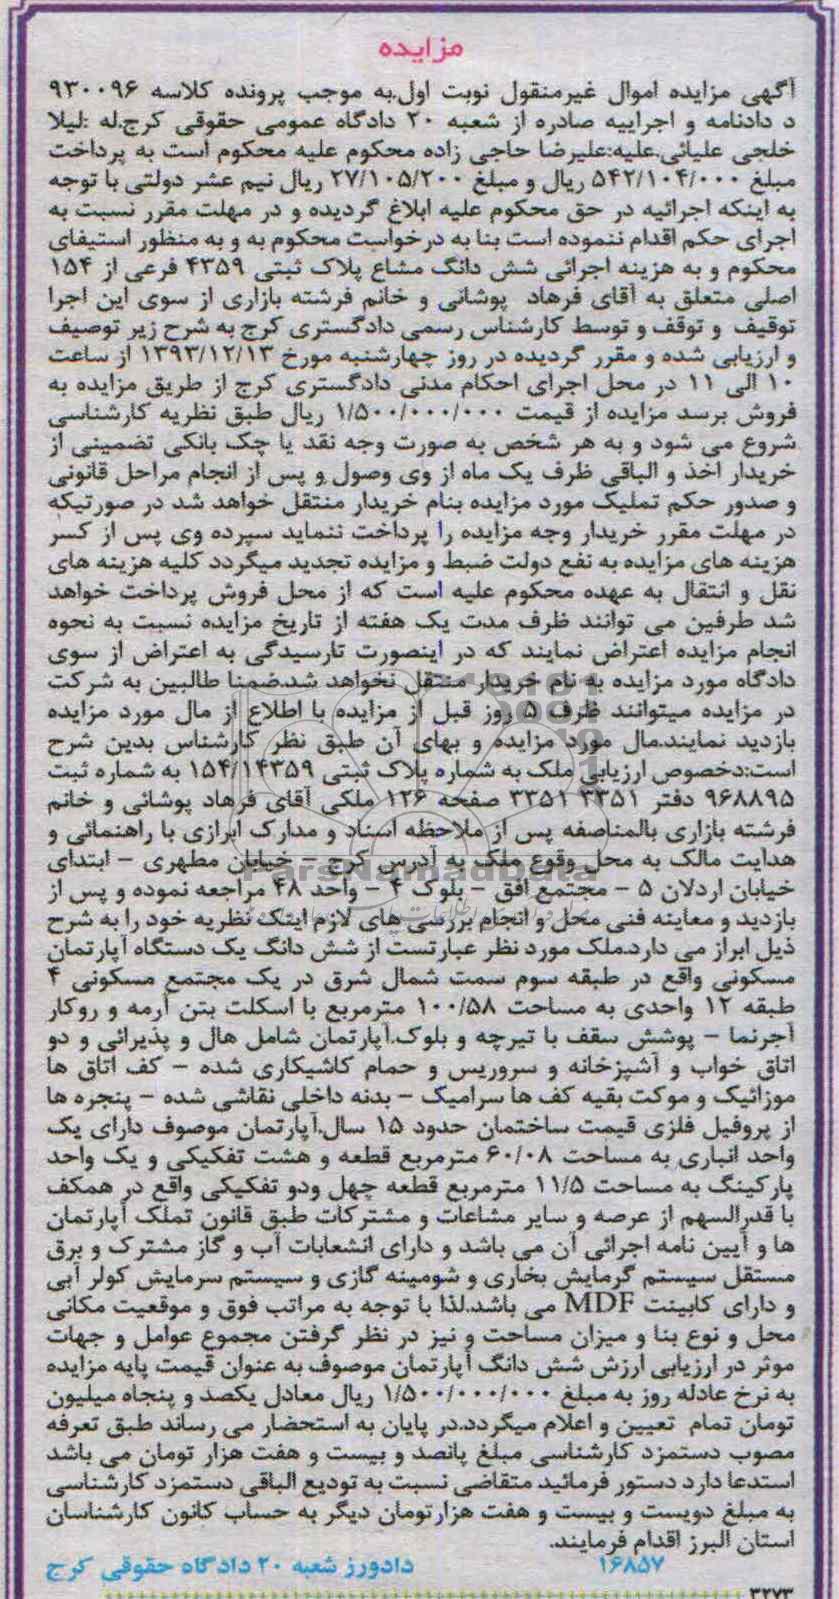 مزایده
آگهی مزایده اموال غیرمنقول نوبت اول.به موجب پرونده کلاسه ۹۳۰۰۹۶
د دادنامه و اجراییه صادره از شعبه ۲۰ دادگاه عمومی حقوقی کرج.له :لیلا
خلجی علیائی.علیه:علیرضا حاجی زاده محکوم علیه محکوم است به پرداخت
مبلغ ۵۴۲/۱۰۴/۰۰۰ ریال و مبلغ ۲۷/۱۰۵/۲۰۰ ریال نیم عشر دولتی با توجه
به اینکه اجرائیه در حق محکوم علیه ابلاغ گردیده و در مهلت مقرر نسبت به
اجرای حکم اقدام ننموده است بنا به درخواست محکوم به و به منظور استیفای
محکوم و به هزینه اجرائی شش دانگ مشاع پلاک ثبتی ۴۳۵۹ فرعی از ۱۵۴
اصلی متعلق به آقای فرهاد پوشانی و خانم فرشته بازاری از سوی این اجرا
توقیف و توقف و توسط کارشناس رسمی دادگستری کرج به شرح زیر توصیف
و ارزیابی شده و مقرر گردیده در روز چهارشنبه مورخ ۱۳۹۳/۱۲/۱۳ از ساعت
۱۰ الی ۱۱ در محل اجرای احکام مدنی دادگستری کرج از طریق مزایده به
فروش برسد مزایده از قیمت ۱/۵۰۰/۰۰۰/۰۰۰ ریال طبق نظریه کارشناسی
شروع می شود و به هر شخص به صورت وجه نقد یا چک بانکی تضمینی از
خریدار اخذ و الباقی ظرف یک ماه از وی وصول و پس از انجام مراحل قانونی
و صدور حکم تملیک مورد مزایده بنام خریدار منتقل خواهد شد در صورتیکه
در مهلت مقرر خریدار وجه مزایده را پرداخت ننماید سپرده وی پس از کسر
هزینه های مزایده به نفع دولت ضبط و مزایده تجدید میگردد کلیه هزینه های
نقل و انتقال به عهده محکوم علیه است که از محل فروش پرداخت خواهد
شد طرفین می توانند ظرف مدت یک هفته از تاریخ مزایده نسبت به نحوه
انجام مزایده اعتراض نمایند که در اینصورت تارسیدگی به اعتراض از سوی
دادگاه مورد مزایده به نام خریدار منتقل نخواهد شد.ضمنا طالبین به شرکت
در مزایده میتوانند ظرف ۵ روز قبل از مزایده با اطلاع از مال مورد مزایده
بازدید نمایند.مال مورد مزایده و بهای آن طبق نظر کارشناس بدین شرح
است:دخصوص ارزیابی ملک به شماره پلاک ثبتی ۱۵۴/۱۴۳۵۹ به شماره ثبت
۹۶۸۸۹۵ دفتر ۳۳۵۱ ۳۳۵۱ صفحه ۱۲۶ ملکی آقای فرهاد پوشانی و خانم
فرشته بازاری بالمناصفه پس از ملاحظه اسناد و مدارک ابرازی با راهنمائی و
هدایت مالک به محل وقوع ملک به آدرس کرج – خیابان مطهری – ابتدای
خیابان اردلان ۵ – مجتمع افق – بلوک ۴ – واحد ۴۸ مراجعه نموده و پس از
بازدید و معاینه فنی محل و انجام بررسی های لازم اینک نظریه خود را به شرح
ذیل ابراز می دارد.ملک مورد نظر عبارتست از شش دانگ یک دستگاه آپارتمان
مسکونی واقع در طبقه سوم سمت شمال شرق در یک مجتمع مسکونی ۴
طبقه ۱۲ واحدی به مساحت ۱۰۰/۵۸ مترمربع با اسکلت بتن آرمه و روکار
آجرنما – پوشش سقف با تیرچه و بلوک.آپارتمان شامل هال و پذیرائی و دو
اتاق خواب و آشپزخانه و سرویس و حمام کاشیکاری شده – کف اتاق ها
موزائیک و موکت بقیه کف ها سرامیک – بدنه داخلی نقاشی شده – پنجره ها
از پروفیل فلزی قیمت ساختمان حدود ۱۵ سال.آپارتمان موصوف دارای یک
واحد انباری به مساحت ۶۰/۰۸ مترمربع قطعه و هشت تفکیکی و یک واحد
پارکینگ به مساحت ۱۱/۵ مترمربع قطعه چهل ودو تفکیکی واقع در همکف
با قدرالسهم از عرصه و سایر مشاعات و مشترکات طبق قانون تملک آپارتمان
ها و آیین نامه اجرائی آن می باشد و دارای انشعابات آب و گاز مشترک و برق
مستقل سیستم گرمایش بخاری و شومینه گازی و سیستم سرمایش کولر آبی
و دارای کابینت MDF می باشد.لذا با توجه به مراتب فوق و موقعیت مکانی
محل و نوع بنا و میزان مساحت و نیز در نظر گرفتن مجموع عوامل و جهات
موثر در ارزیابی ارزش شش دانگ آپارتمان موصوف به عنوان قیمت پایه مزایده
به نرخ عادله روز به مبلغ ۱/۵۰۰/۰۰۰/۰۰۰ ریال معادل یکصد و پنجاه میلیون
تومان تمام تعیین و اعلام میگردد.در پایان به استحضار می رساند طبق تعرفه
مصوب دستمزد کارشناسی مبلغ پانصد و بیست و هفت هزار تومان می باشد
استدعا دارد دستور فرمائید متقاضی نسبت به تودیع الباقی دستمزد کارشناسی
به مبلغ دویست و بیست و هفت هزارتومان دیگر به حساب کانون کارشناسان
استان البرز اقدام فرمایند.
۱۶۸۵۷ دادورز شعبه ۲۰ دادگاه حقوقی کرج
۳۲۷۳
ParsNamadData